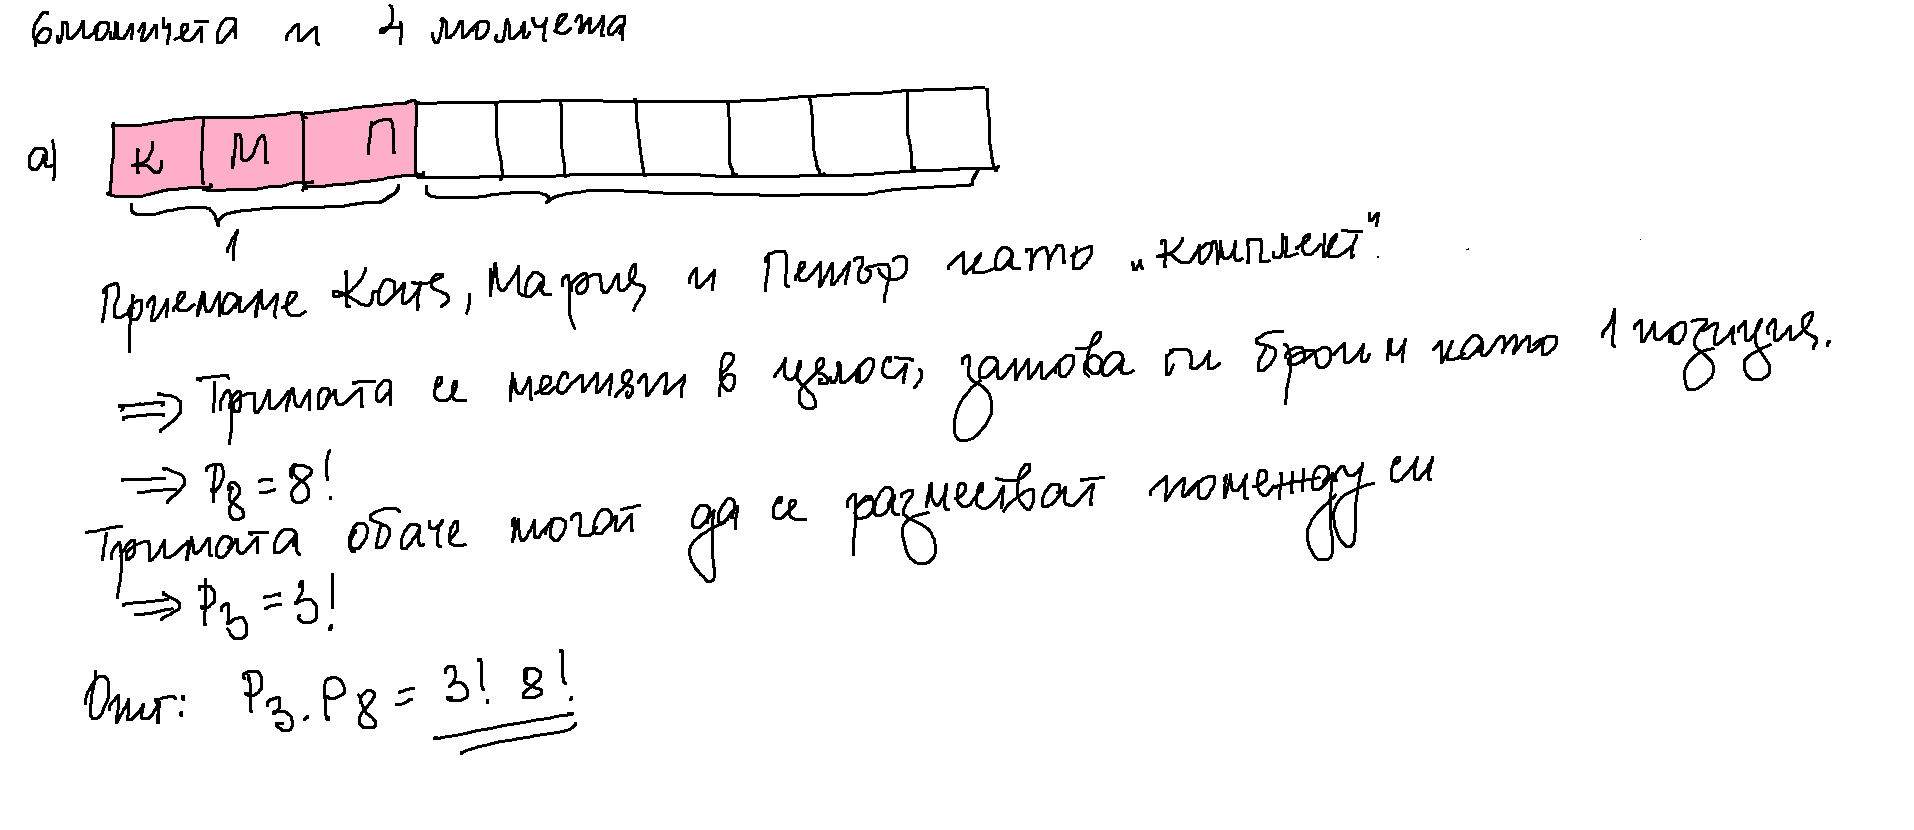 6 момичета и 4 момчета
а) К М П
1
Приемаме Катя, Мария и Петър като „комплект“.
⇒ Тримата се местят в цялост, затова ги броим като 1 позиция.
⇒ P₈ = 8!
Тримата обаче могат да се разместват помежду си
⇒ P₃ = 3!
Отг: P₃ . P₈ = 3! 8!